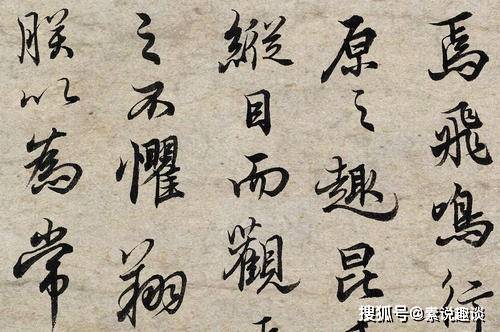 焉飛鳴行
原之趣昆
縱目而觀
之不懼翔
朕以為常
搜狐号@素说趣谈